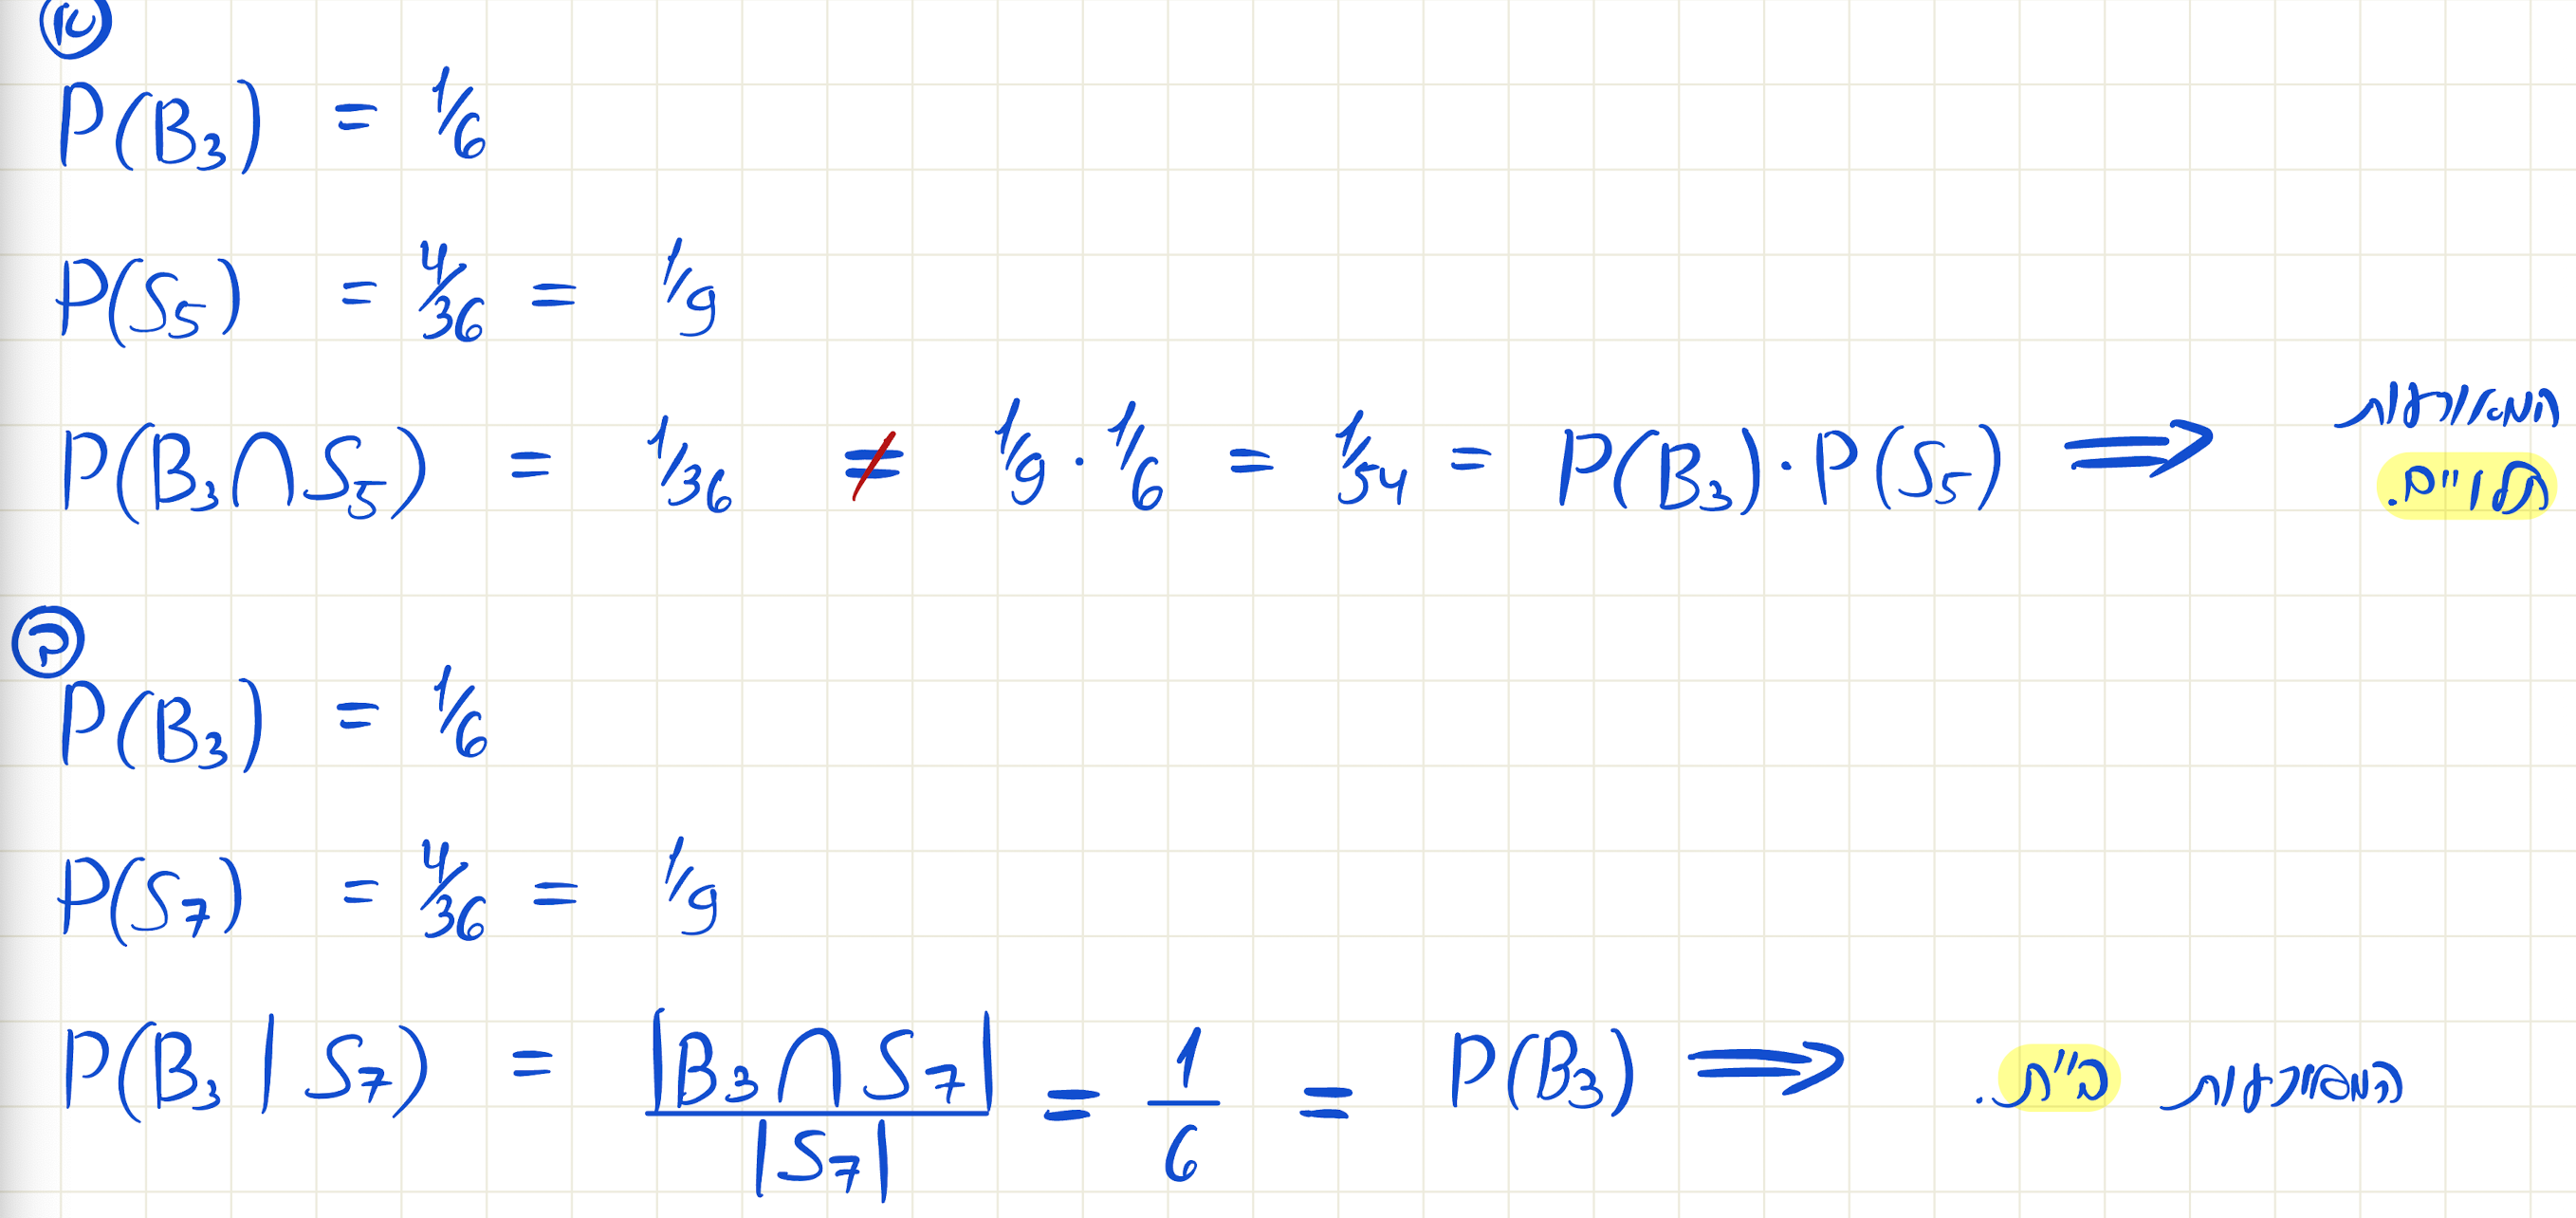 א
P(B₃) = 1/6
P(S₅) = 4/36 = 1/9
P(B₃∩S₅) = 1/36 ≠ 1/9 · 1/6 = 1/54 = P(B₃)·P(S₅) ⟹ המאורעות
תלויים.
ב
P(B₃) = 1/6
P(S₇) = 4/36 = 1/9
P(B₃ | S₇) = |B₃∩S₇| / |S₇| = 1/6 = P(B₃) ⟹ המאורעות ב״ת.